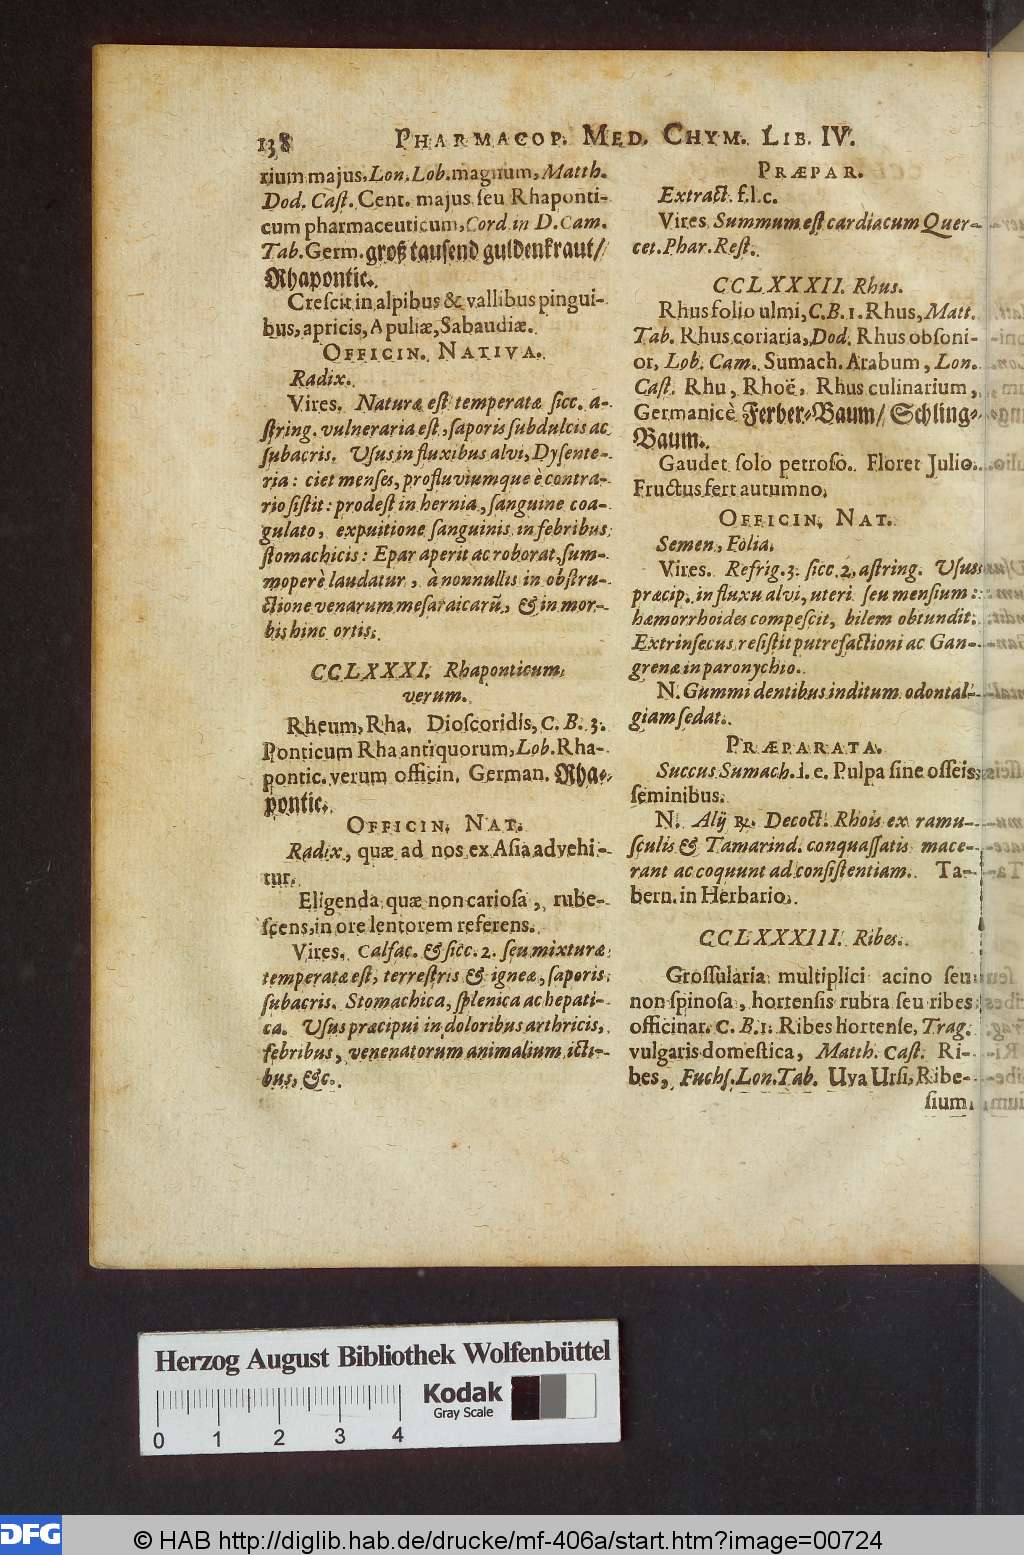 138 PHARMACOP. MED. CHYM. LIB. IV.
rium majus, Lon. Lob. magnum, Matth.
Dod. Caſt. Cent. majus ſeu Rhaponti-
cum pharmaceuticum, Cord in D. Cam.
Tab. Germ. groß tauſend guldenkraut/
Rhapontic.
Creſcit in alpibus & vallibus pingui-
bus, apricis, Apuliæ, Sabaudiæ.
OFFICIN. NATIVA.
Radix.
Vires. Naturæ eſt temperatæ ſicc. a-
ſtring. vulneraria eſt, ſaporis ſubdulcis ac
ſubacris. Uſus in fluxibus alvi, Dyſente-
ria: ciet menſes, profluviumque è contra-
rio ſiſtit: prodeſt in hernia, ſanguine coa-
gulato, expuitione ſanguinis in febribus
ſtomachicis: Epar aperit ac roborat, ſum-
moperè laudatur, à nonnullis in obſtru-
ctione venarum meſaraicarũ, & in mor-
bis hinc ortis.
CCLXXXI. Rhaponticum
verum.
Rheum, Rha. Dioſcoridis, C. B. 3.
Ponticum Rha antiquorum, Lob. Rha-
pontic. verum officin. German. Rha-
pontic.
OFFICIN. NAT.
Radix, quæ ad nos ex Aſia advehi-
tur.
Eligenda quæ non carioſa, rube-
ſcens, in ore lentorem referens.
Vires. Calfac. & ſicc. 2. ſeu mixturæ
temperatæ eſt, terreſtris & igneæ, ſaporis
ſubacris. Stomachica, ſplenica ac hepati-
ca. Uſus præcipui in doloribus arthricis,
febribus, venenatorum animalium icti-
bus, &c.
PRÆPAR.
Extract. f.l.c.
Vires Summum eſt cardiacum Quer-
cet. Phar. Reſt.
CCLXXXII. Rhus.
Rhus folio ulmi, C.B. 1. Rhus, Matt.
Tab. Rhus coriaria, Dod. Rhus obſoni-
or, Lob. Cam. Sumach. Arabum, Lon.
Caſt. Rhu, Rhoë, Rhus culinarium,
Germanicè Ferber-Baum/ Schling-
Baum.
Gaudet ſolo petroſo. Floret Julio.
Fructus fert autumno.
OFFICIN. NAT.
Semen, Folia.
Vires. Refrig. 3. ſicc. 2, aſtring. Uſus
præcip. in fluxu alvi, uteri ſeu menſium:
hæmorrhoides compeſcit, bilem obtundit.
Extrinſecus reſiſtit putrefactioni ac Gan-
grenæ in paronychio.
N. Gummi dentibus inditum odontal-
giam ſedat.
PRÆPARATA.
Succus Sumach. i. e. Pulpa ſine oſſeis
ſeminibus.
N. Alij ℞. Decoct. Rhois ex ramu-
ſculis & Tamarind. conquaſſatis mace-
rant ac coquunt ad conſiſtentiam. Ta-
bern. in Herbario.
CCLXXXIII. Ribes.
Groſſularia multiplici acino ſeu
non ſpinoſa, hortenſis rubra ſeu ribes
officinar. C. B. 1. Ribes hortenſe, Trag.
vulgaris domeſtica, Matth. Caſt. Ri-
bes, Fuchſ. Lon. Tab. Uva Urſi, Ribe-
ſium.
Herzog August Bibliothek Wolfenbüttel
Kodak
Gray Scale
0 1 2 3 4
DFG
© HAB http://diglib.hab.de/drucke/mf-406a/start.htm?image=00724